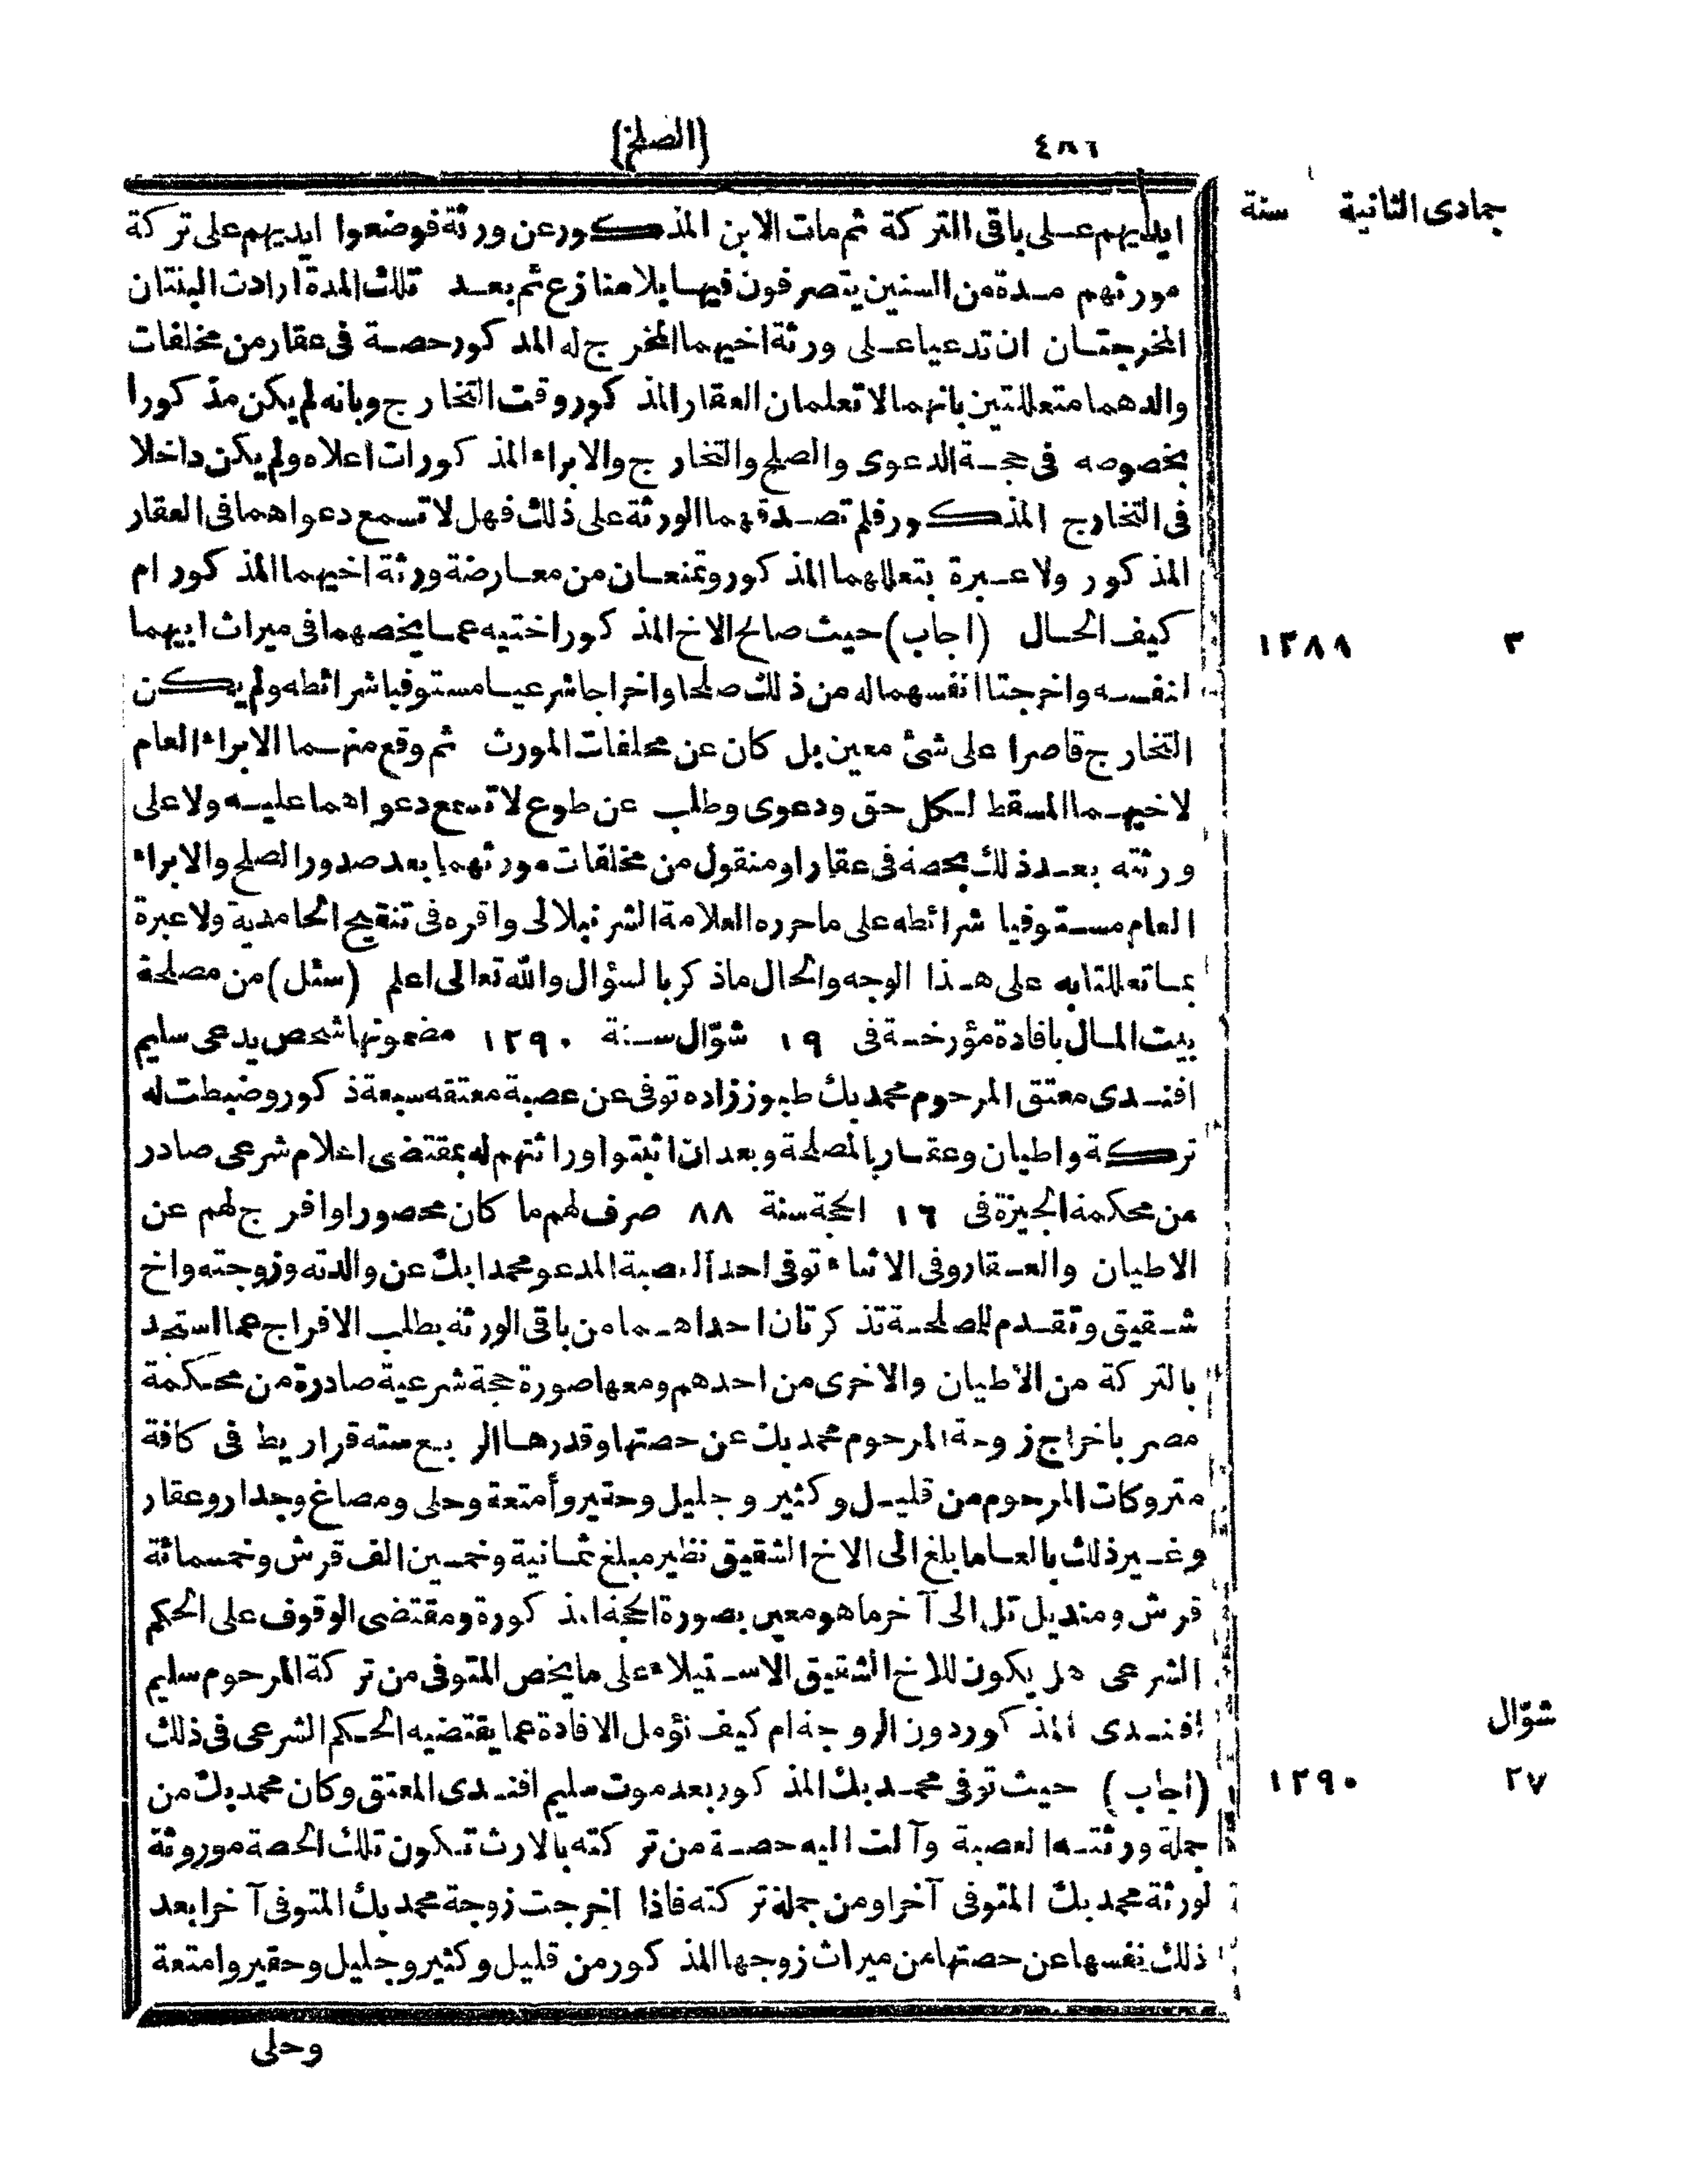 ٤٨٦
(الصلح)
جمادى الثانية سنة
ايديهم على باقى التركة ثم مات الابن المذكور عن ورثة فوضعوا ايديهم على تركة
مورثهم مدة من السنين يتصرفون فيها بلا منازع ثم بعد تلك المدة ارادت البنتان
المخرجتان ان تدعيا على ورثة اخيهما المخرج له المذكور حصة فى عقار من مخلفات
والدهما متعللتين بانهما لا تعلمان العقار المذكور وقت التخارج وبانه لم يكن مذكورا
بخصوصه فى حجة الدعوى والصلح والتخارج والابراء المذكورات اعلاه ولم يكن داخلا
فى التخارج المذكور فلم تصدقهما الورثة على ذلك فهل لا تسمع دعواهما فى العقار
المذكور ولا عبرة بتعللهما المذكور وتمنعان من معارضة ورثة اخيهما المذكور ام
كيف الحال (اجاب) حيث صالح الاخ المذكور اختيه عما يخصهما فى ميراث ابيهما
٣ ١٢٨٩
لنفسه واخرجتا انفسهما له من ذلك صلحا واخراجا شرعيا مستوفيا شرائطه ولم يكن
التخارج قاصرا على شئ معين بل كان عن مخلفات المورث ثم وقع منهما الابراء العام
لاخيهما المسقط لكل حق ودعوى وطلب عن طوع لا تسمع دعواهما عليه ولا على
ورثته بعد ذلك بحصة فى عقار او منقول من مخلفات مورثهما بعد صدور الصلح والابراء
العام مستوفيا شرائطه على ما حرره العلامة الشرنبلالى واقره فى تنقيح الحامدية ولا عبرة
بما تعللتا به على هذا الوجه والحال ما ذكر بالسؤال والله تعالى اعلم (سئل) من مصلحة
بيت المال بافادة مؤرخة فى ١٩ شوّال سنة ١٢٩٠ مضمونها شخص يدعى سليم
افندى معتق المرحوم محمد بك طبوز زاده توفى عن عصبة معتقه سبعة ذكور وضبطت له
تركة واطيان وعقار بالمصلحة وبعد ان اثبتوا وراثتهم له بمقتضى اعلام شرعى صادر
من محكمة الجيزة فى ١٦ الحجة سنة ٨٨ صرف لهم ما كان محصورا وافرج لهم عن
الاطيان والعقار وفى الاثناء توفى احد العصبة المدعو محمدا بك عن والدته وزوجته واخ
شقيق وتقدم للمصلحة تذكرتان احداهما من باقى الورثة بطلب الافراج عما استجد
بالتركة من الاطيان والاخرى من احدهم ومعها صورة حجة شرعية صادرة من محكمة
مصر باخراج زوجة المرحوم محمد بك عن حصتها وقدرها الربع ستة قراريط فى كافة
متروكات المرحوم من قليل وكثير وجليل وحقير وأمتعة وحلى ومصاغ وجدار وعقار
وغير ذلك بالغا ما بلغ الى الاخ الشقيق نظير مبلغ ثمانية وخمسين الف قرش وخمسمائة
قرش ومنديل تل الى آخر ما هو معين بصورة الحجة المذكورة ومقتضى الوقوف على الحكم
الشرعى هل يكون للاخ الشقيق الاستيلاء على ما يخص المتوفى من تركة المرحوم سليم
افندى المذكور دون الزوجة ام كيف نؤمل الافادة عما يقتضيه الحكم الشرعى فى ذلك
شوّال
(أجاب) حيث توفى محمد بك المذكور بعد موت سليم افندى المعتق وكان محمد بك من
٢٧ ١٢٩٠
جملة ورثته العصبة وآلت اليه حصة من تركته بالارث تكون تلك الحصة موروثة
لورثة محمد بك المتوفى آخرا ومن جملة تركته فاذا اخرجت زوجة محمد بك المتوفى آخرا بعد
ذلك نفسها عن حصتها من ميراث زوجها المذكور من قليل وكثير وجليل وحقير وامتعة
وحلى